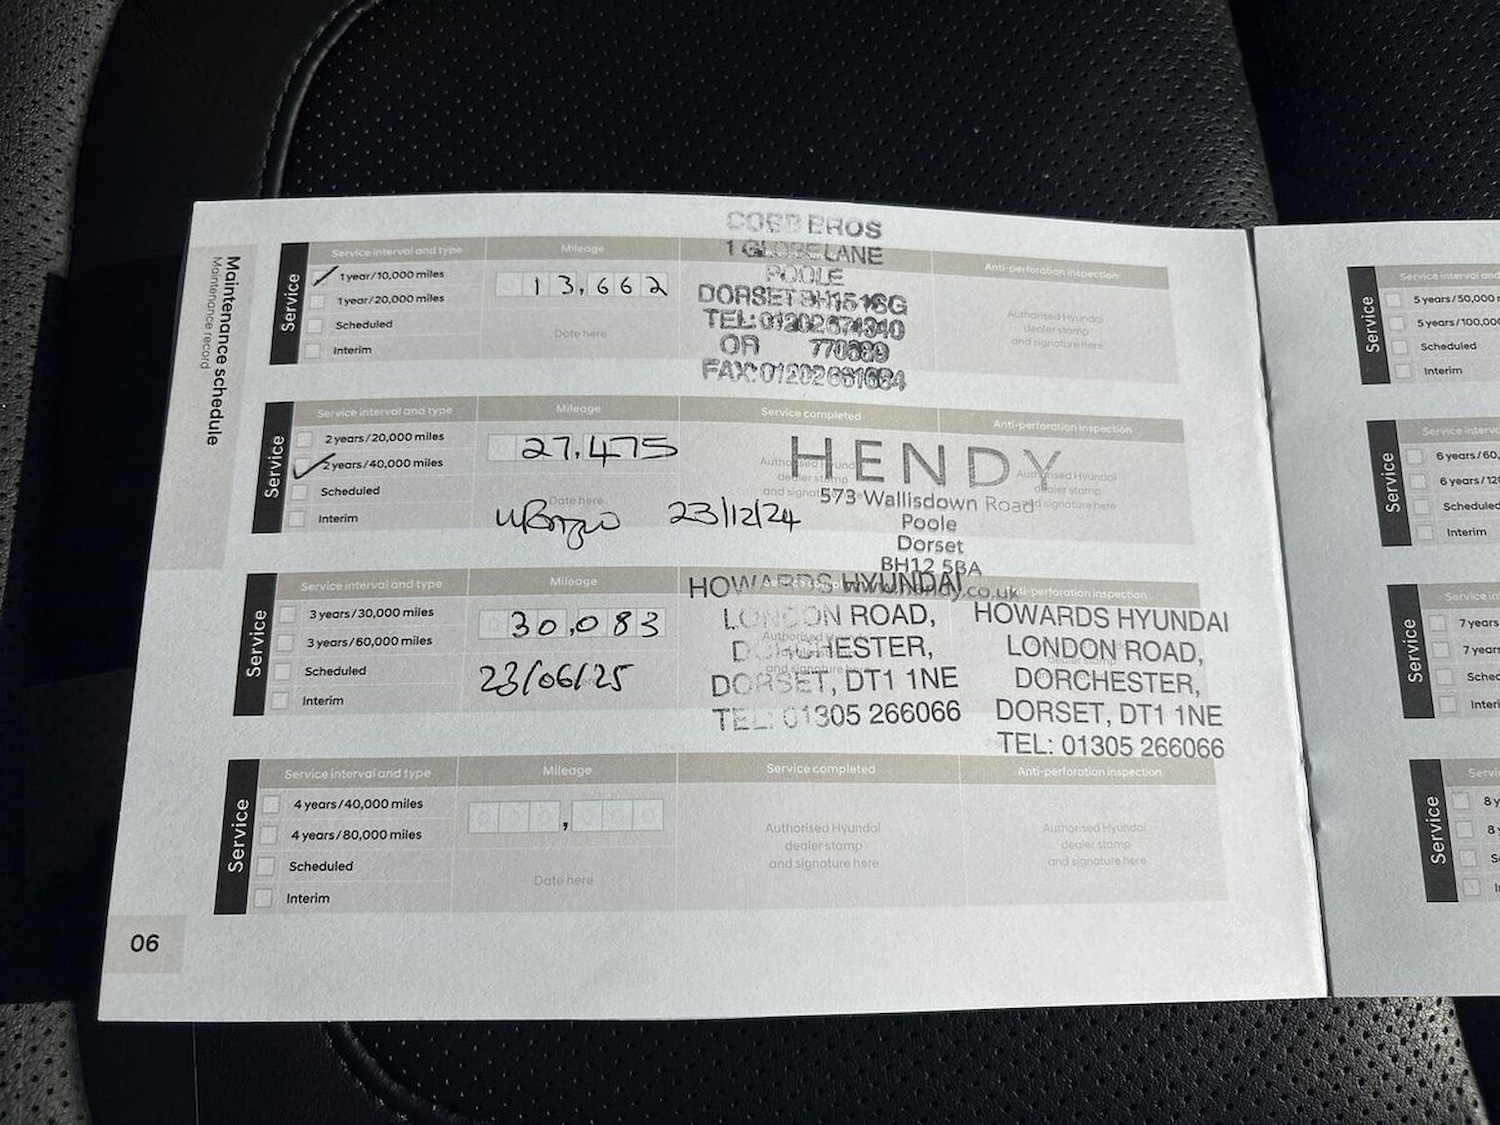 Maintenance schedule
Maintenance record
Service
Service interval and type
1 year/10,000 miles
1 year/20,000 miles
Scheduled
Interim
Mileage
13,662
Date here
COBB BROS
1 GLOBE LANE
POOLE
DORSET BH15 1SG
TEL: 01202 674340
OR 770889
FAX: 01202 661684
Anti-perforation inspection
Authorised Hyundai
dealer stamp
and signature here
Service
Service interval and type
2 years/20,000 miles
2 years/40,000 miles
Scheduled
Interim
Mileage
27,475
Date here
23/12/24
Service completed
Anti-perforation inspection
HENDY
573 Wallisdown Road
Poole
Dorset
BH12 5BA
www.hendy.co.uk
Authorised Hyundai
dealer stamp
and signature here
Service
Service interval and type
3 years/30,000 miles
3 years/60,000 miles
Scheduled
Interim
Mileage
30,083
23/06/25
HOWARDS HYUNDAI
LONDON ROAD,
DORCHESTER,
DORSET, DT1 1NE
TEL: 01305 266066
Anti-perforation inspection
HOWARDS HYUNDAI
LONDON ROAD,
DORCHESTER,
DORSET, DT1 1NE
TEL: 01305 266066
Service
Service interval and type
4 years/40,000 miles
4 years/80,000 miles
Scheduled
Interim
Mileage
Date here
Service completed
Authorised Hyundai
dealer stamp
and signature here
Anti-perforation inspection
Authorised Hyundai
dealer stamp
and signature here
06
Service
Service interval and
5 years/50,000
5 years/100,00
Scheduled
Interim
Service
Service interva
6 years/60,
6 years/12
Scheduled
Interim
Service
Service in
7 years
7 year
Sched
Interi
Service
Servi
8 y
8
S